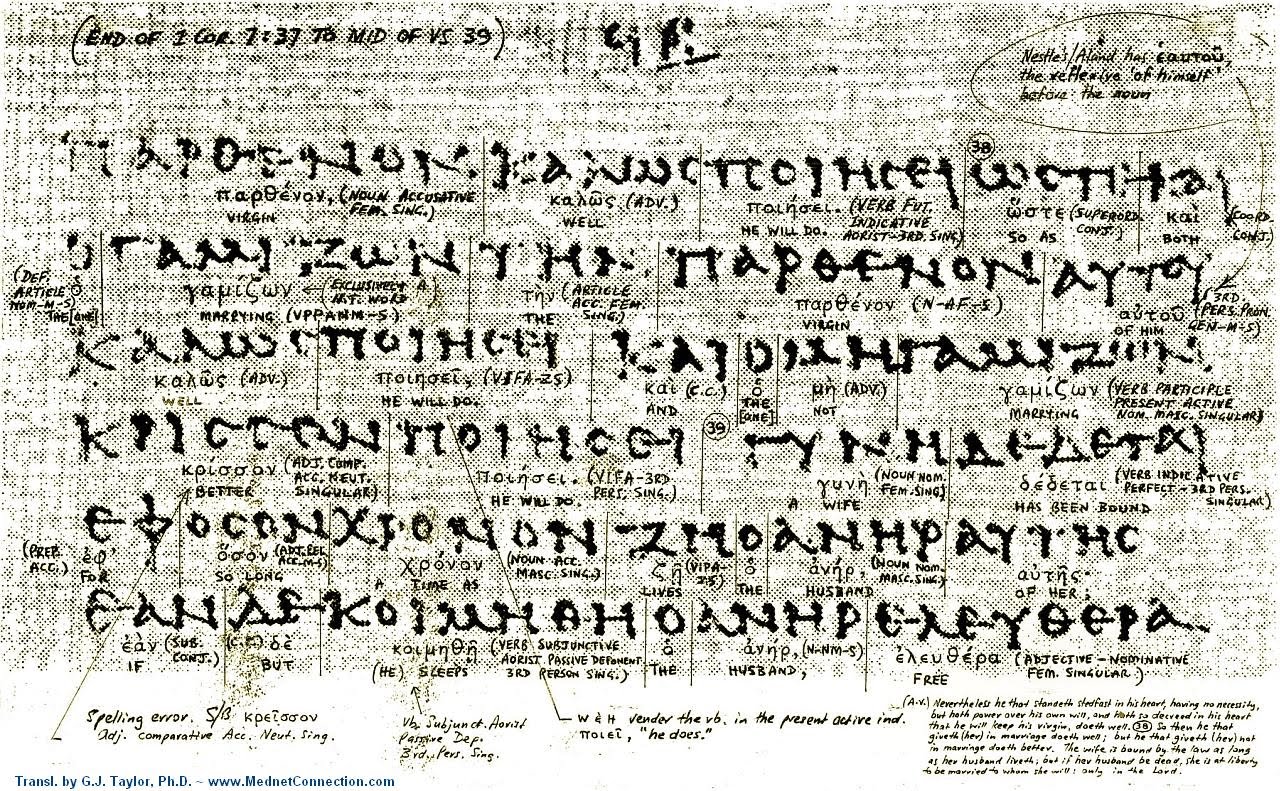 (END OF I COR. 7:37 TO MID OF VS 39)
Nestle's/Aland has ἑαυτοῦ,
the reflexive 'of himself'
before the noun
ΠΑΡΘΕΝΟΝ ΚΑΛΩϹ ΠΟΙΗϹΕΙ 38 ΩϹΤΕ ΚΑΙ
παρθένον, (NOUN ACCUSATIVE FEM. SING.) καλῶς (ADV.) ποιήσει. (VERB FUT. INDICATIVE AORIST-3RD. SING) ὥστε (SUPERORD. CONJ.) καὶ (COORD. CONJ.)
VIRGIN WELL HE WILL DO. SO AS BOTH
Ο ΓΑΜΙΖΩΝ ΤΗΝ ΠΑΡΘΕΝΟΝ ΑΥΤΟΥ
(DEF. ARTICLE NOM-M-S) ὁ γαμίζων (EXCLUSIVELY A N.T. WORD) τὴν (ARTICLE ACC. FEM. SING.) παρθένον (N-AF-S) αὐτοῦ (3RD. PERS. PRON. GEN-M-S)
THE [ONE] MARRYING (VPPANM-S) THE VIRGIN OF HIM
ΚΑΛΩϹ ΠΟΙΗϹΕΙ ΚΑΙ Ο ΜΗ ΓΑΜΙΖΩΝ
καλῶς (ADV.) ποιήσει, (VIFA-ZS) καὶ (C.C.) ὁ μὴ (ADV.) γαμίζων (VERB PARTICIPLE PRESENT ACTIVE NOM. MASC. SINGULAR)
WELL HE WILL DO. AND THE [ONE] NOT MARRYING
ΚΡΙϹϹΟΝ ΠΟΙΗϹΕΙ 39 ΓΥΝΗ ΔΕΔΕΤΑΙ
κρίσσον (ADJ. COMP. ACC. NEUT. SINGULAR) ποιήσει. (VIFA-3RD PERS. SING.) γυνὴ (NOUN NOM. FEM. SING) δέδεται (VERB INDICATIVE PERFECT-3RD PERS. SINGULAR)
BETTER HE WILL DO. A WIFE HAS BEEN BOUND
ΕΦ ΟϹΟΝ ΧΡΟΝΟΝ ΖΗ Ο ΑΝΗΡ ΑΥΤΗϹ
(PREP. ACC.) ἐφ' ὅσον (ADJ. REL. ACC-M-S) χρόνον (NOUN ACC. MASC. SING.) ζῇ (VIPA-ZS) ὁ ἀνήρ, (NOUN NOM. MASC. SING.) αὐτῆς·
FOR SO LONG A TIME AS LIVES THE HUSBAND OF HER;
ΕΑΝ ΔΕ ΚΟΙΜΗΘΗ Ο ΑΝΗΡ ΕΛΕΥΘΕΡΑ
ἐὰν (SUB. CONJ.) δὲ κοιμηθῇ (VERB SUBJUNCTIVE AORIST PASSIVE DEPONENT 3RD PERSON SING.) ὁ ἀνήρ, (N-NM-S) ἐλευθέρα (ADJECTIVE-NOMINATIVE FEM. SINGULAR.)
IF BUT (HE) SLEEPS THE HUSBAND, FREE
Spelling error. S/B κρεῖσσον
Adj. comparative Acc. Neut. Sing.
Vb. Subjunct. Aorist
Passive Dep.
3rd. Pers. Sing.
W & H render the vb. in the present active ind.
ποιεῖ, "he does."
(A.V.) Nevertheless he that standeth stedfast in his heart, having no necessity,
but hath power over his own will, and hath so decreed in his heart
that he will keep his virgin, doeth well. 38 So then he that
giveth (her) in marriage doeth well; but he that giveth (her) not
in marriage doeth better. The wife is bound by the law as long
as her husband liveth; but if her husband be dead, she is at liberty
to be married to whom she will: only in the Lord.
Transl. by G.J. Taylor, Ph.D. ~ www.MednetConnection.com